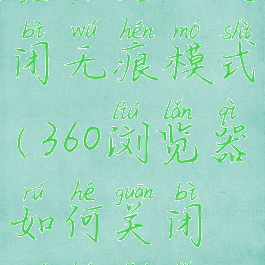 bì wú hén mó shì
闭无痕模式
liú lǎn qì
(360浏览器
rú hé guān bì
如何关闭